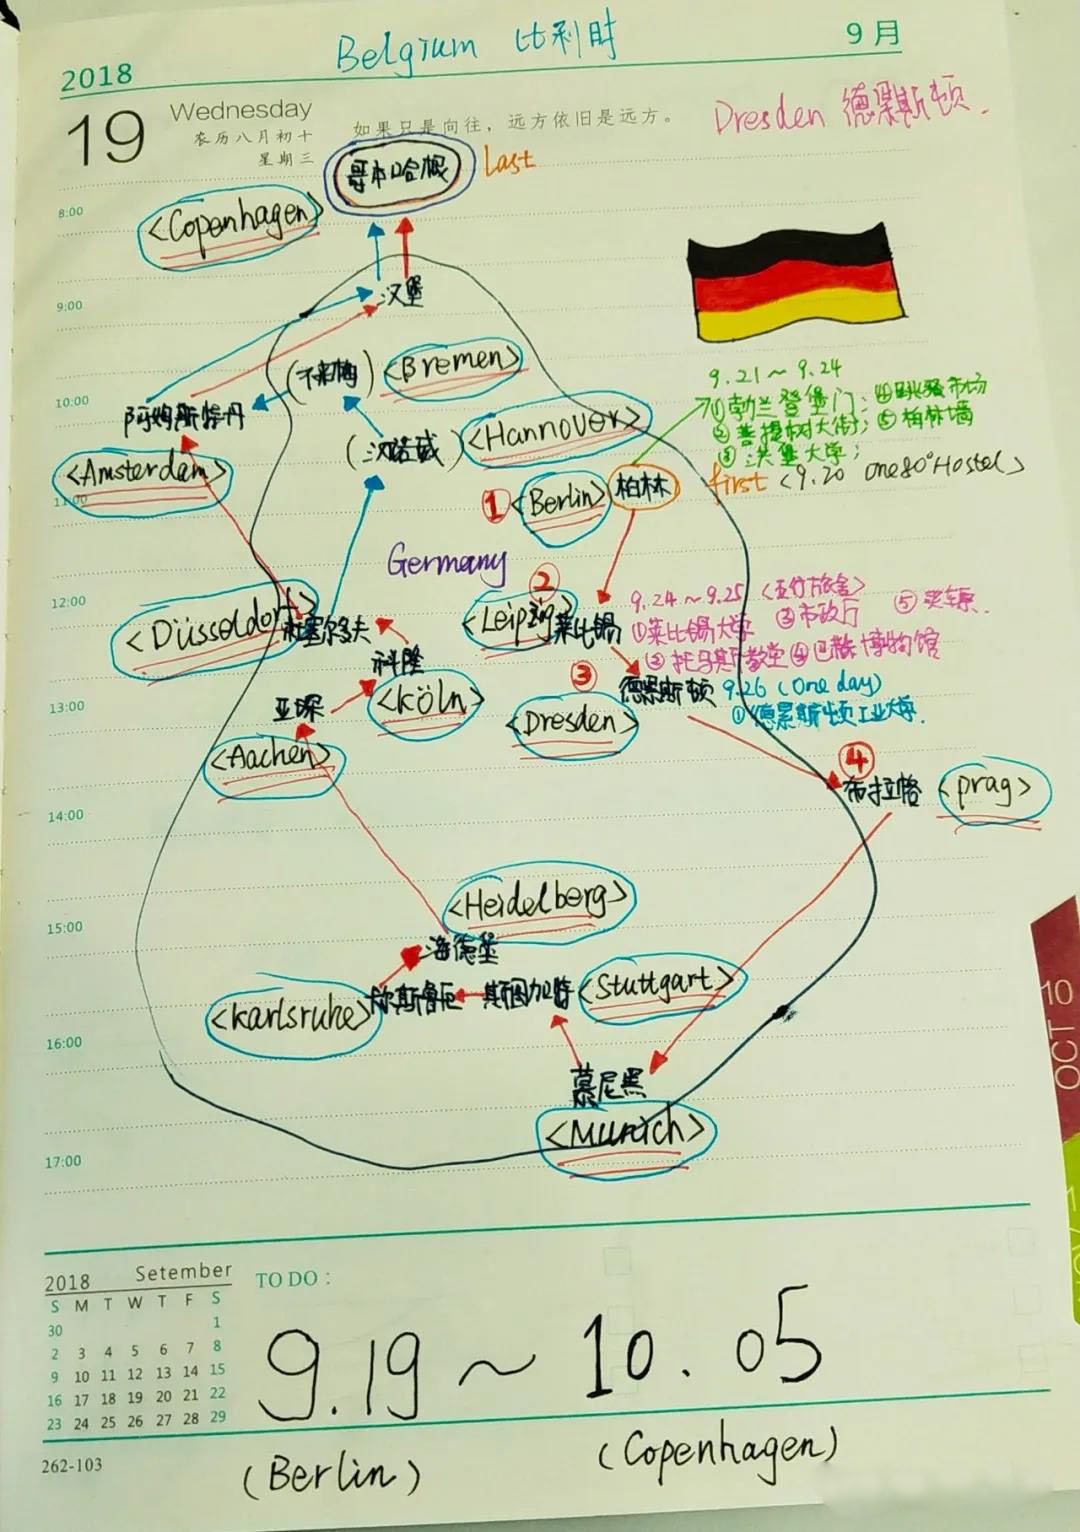 Belgium 比利时
2018
9月
19
Wednesday
农历八月初十
星期三
如果只是向往，远方依旧是远方。
Dresden 德累斯顿.
哥本哈根
Last
<Copenhagen>
8:00
汉堡
9:00
(不来梅)
<Bremen>
9.21～9.24
①勃兰登堡门; ④跳蚤市场
②菩提树大街; ⑤柏林墙
③洪堡大学;
10:00
阿姆斯特丹
(汉诺威)
<Hannover>
<Amsterdam>
first <9.20 one80°Hostel>
① <Berlin> 柏林
11:00
Germany
②
9.24～9.25
12:00
<Leipzig> 莱比锡
①莱比锡大学 ③市政厅 ⑤买车票.
②托马斯教堂 ④巴赫博物馆
<Düsseldorf>
杜塞尔多夫
科隆
③
德累斯顿
9.26 (One day)
①德累斯顿工业大学.
13:00
亚琛
<Köln>
<Dresden>
<Aachen>
④
布拉格 <prag>
14:00
<Heidelberg>
15:00
海德堡
<Karlsruhe>
斯图加特 <Stuttgart>
16:00
慕尼黑
<Munich>
17:00
2018 Setember
TO DO：
S M T W T F S
30 1
2 3 4 5 6 7 8
9 10 11 12 13 14 15
16 17 18 19 20 21 22
23 24 25 26 27 28 29
9.19 ～ 10.05
(Berlin)
(Copenhagen)
262-103
10
OCT